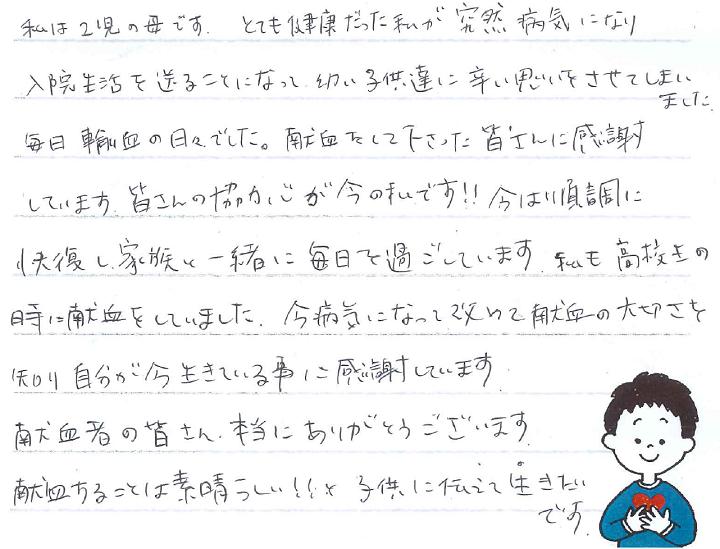 私は2児の母です。とても健康だった私が突然病気になり
入院生活を送ることになって幼い子供達に辛い思いをさせてしまい
ました。
毎日輸血の日々でした。献血をして下さった皆さんに感謝
しています。皆さんの協力心が今の私です!! 今は順調に
快復し家族と一緒に毎日を過ごしています。私も高校生の
時に献血をしていました。今病気になって改めて献血の大切さを
知り自分が今生きている事に感謝しています。
献血者の皆さん、本当にありがとうございます。
献血することは素晴らしい!!と子供に伝えて生きたい
です。